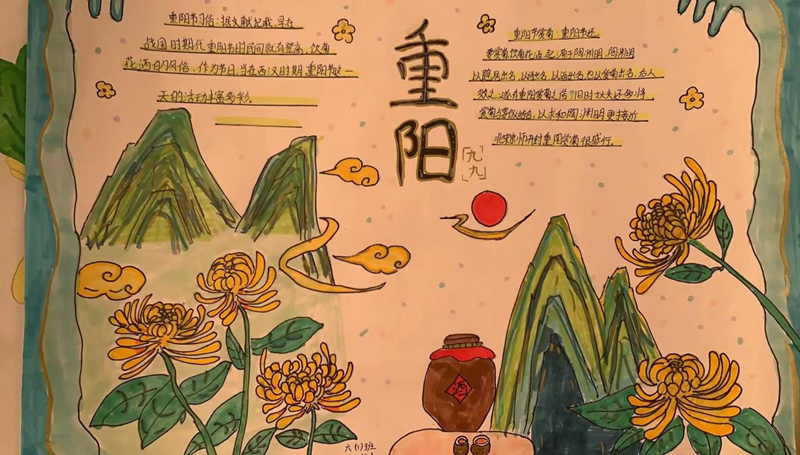 重阳节习俗：据文献记载，早在
战国时期代重阳节时民间就有登高、饮菊
花酒的风俗，作为节日，当在西汉时期重阳节这一
天的活动丰富多彩．
重
阳
「九
九」
重阳节赏菊：重阳节还
要赏菊饮菊花酒，起源于陶渊明，陶渊明
以隐居出名，以诗出名，以酒出名，也以爱菊出名，后人
效之，遂有重阳赏菊之俗，旧时士大夫还多将
赏菊与宴饮结合，以求和陶渊明更接近
北宋京师开封重阳赏菊很盛行．
酒
六（1）班